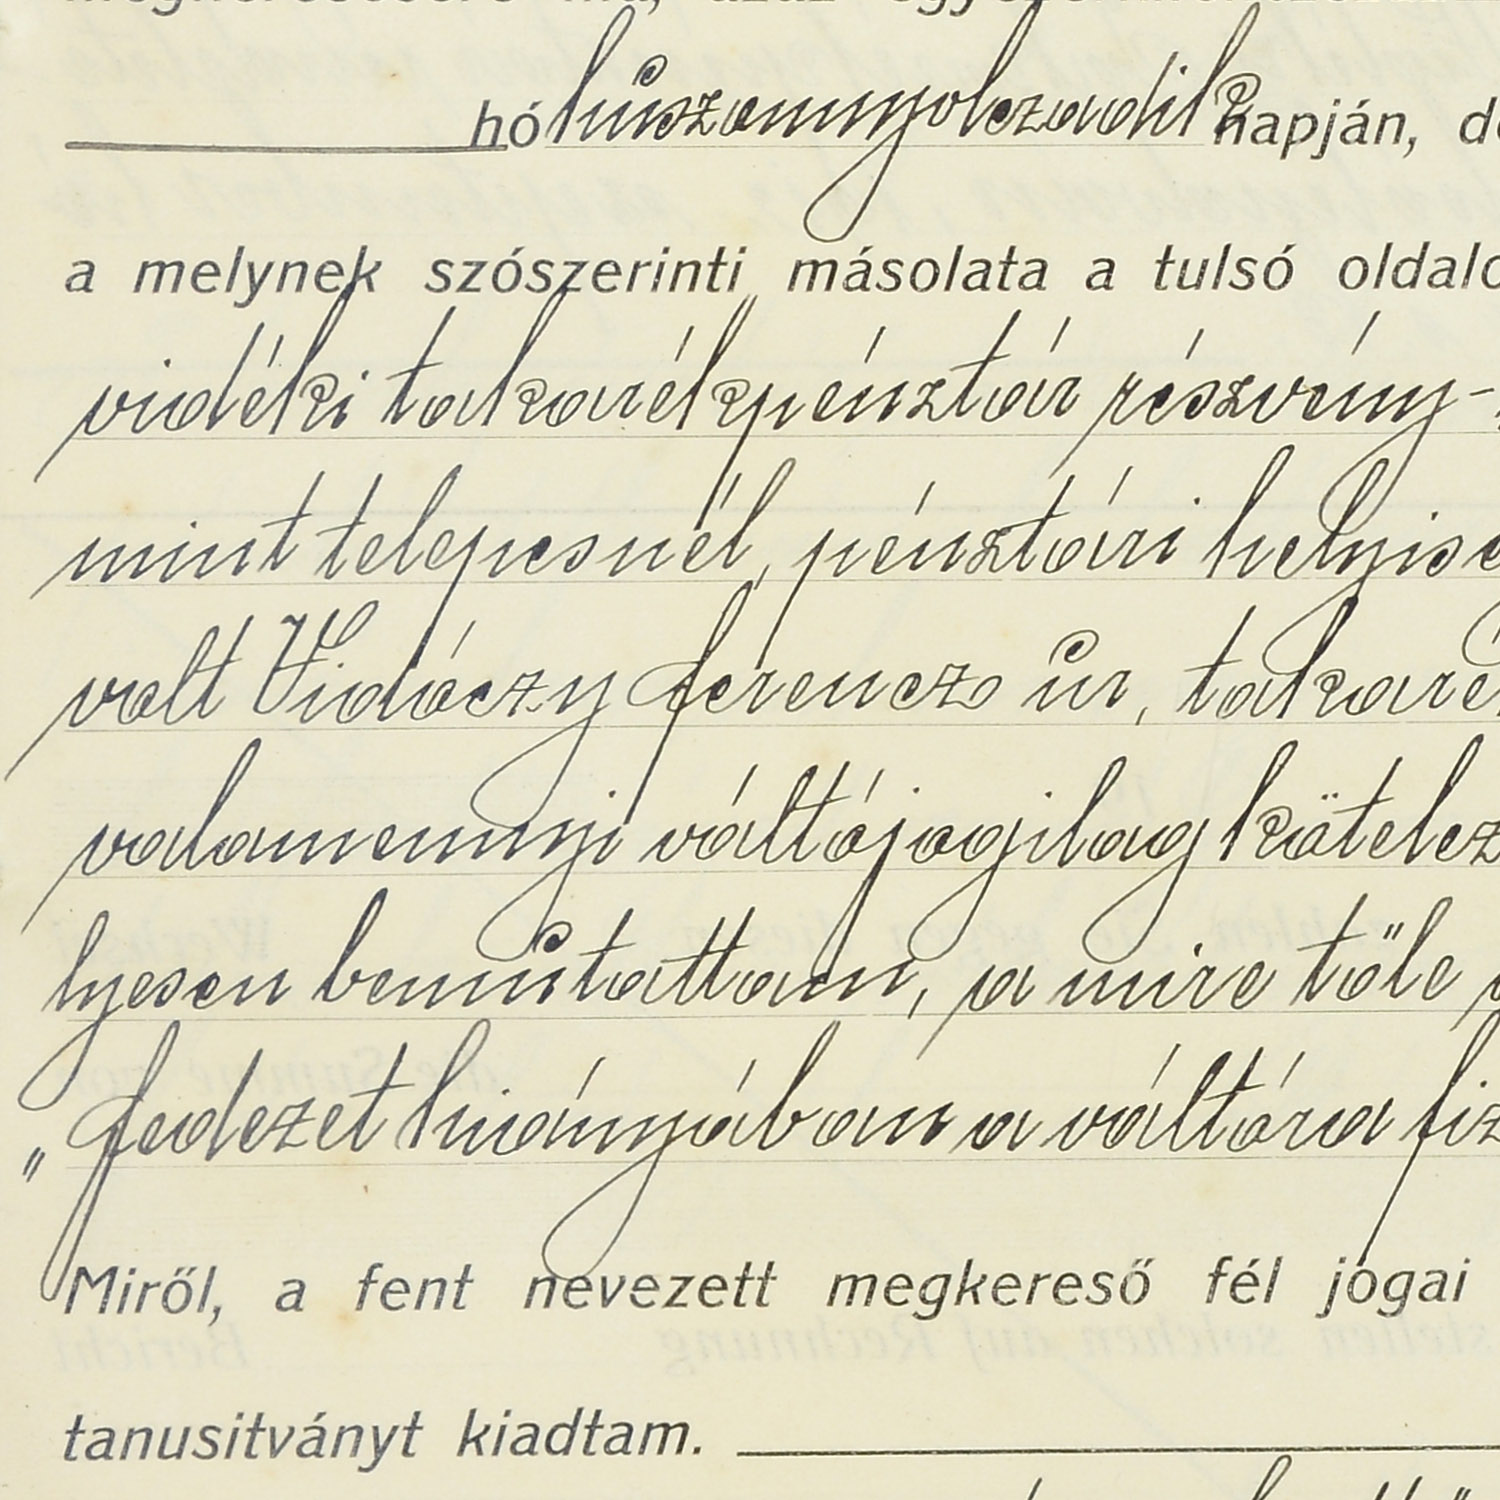 hó húszannyolczadik napján, de
a melynek szószerinti másolata a tulsó oldalo
vidéki takarékpénztár részvény-
mint telepesnél, pénztári helyisé
volt Vidóczy Ferencz úr, takaré
valamennyi váltójogilag kötelez
lyesen bemútattam, a mire tőle
„fedezet hiányában a váltóra fiz
Miről, a fent nevezett megkereső fél jogai
tanusitványt kiadtam.